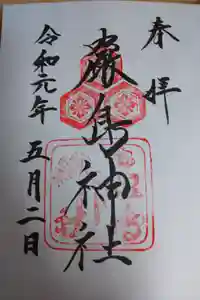 奉拝
嚴島神社
令和元年五月二日